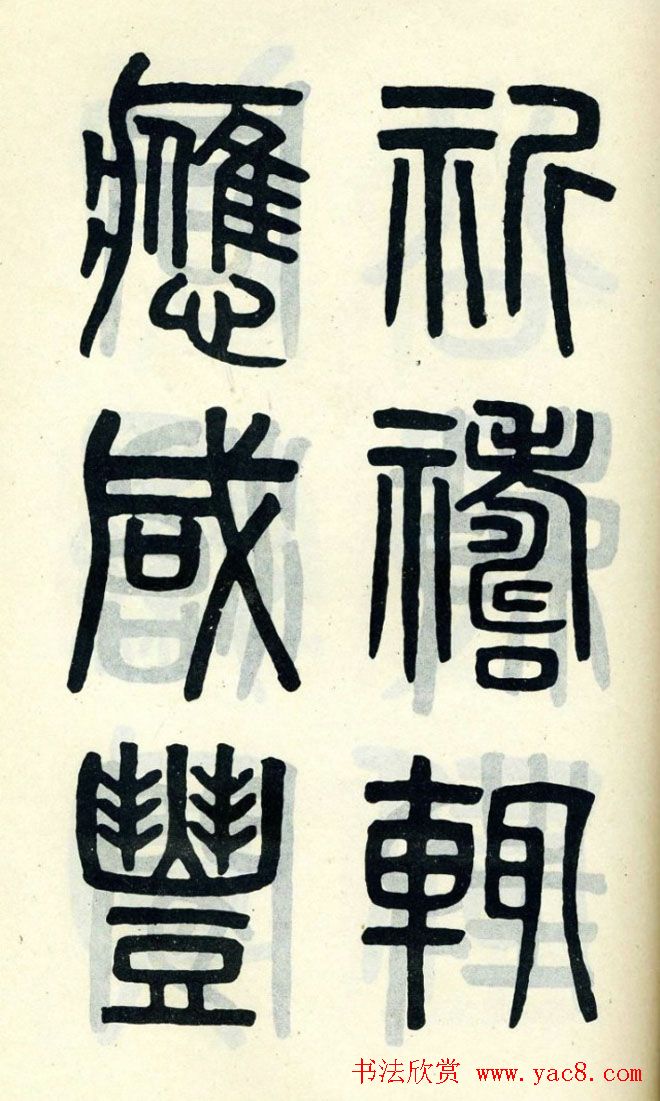 祈禱輒
應咸豐
书法欣赏 www.yac8.com